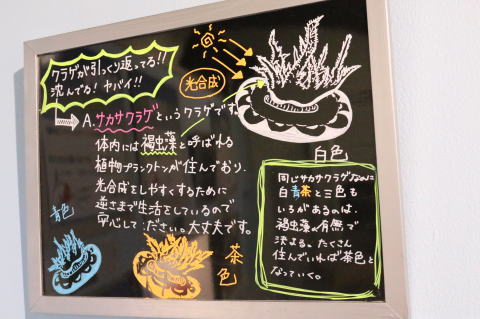 クラゲが引っくり返ってる!!
沈んでる! ヤバイ!!
光合成
A.サカサクラゲというクラゲです
体内には褐虫藻と呼ばれる
植物プランクトンが住んでおり.
光合成をしやすくするために
逆さまで生活をしているので
安心して ださい。大丈夫です。
白色
同じサカサクラゲなのに
白青茶と三色も
いろがあるのは.
褐虫藻の有無で
決まる。たくさん
住んでいれば茶色と
なっていく。
青色
茶色